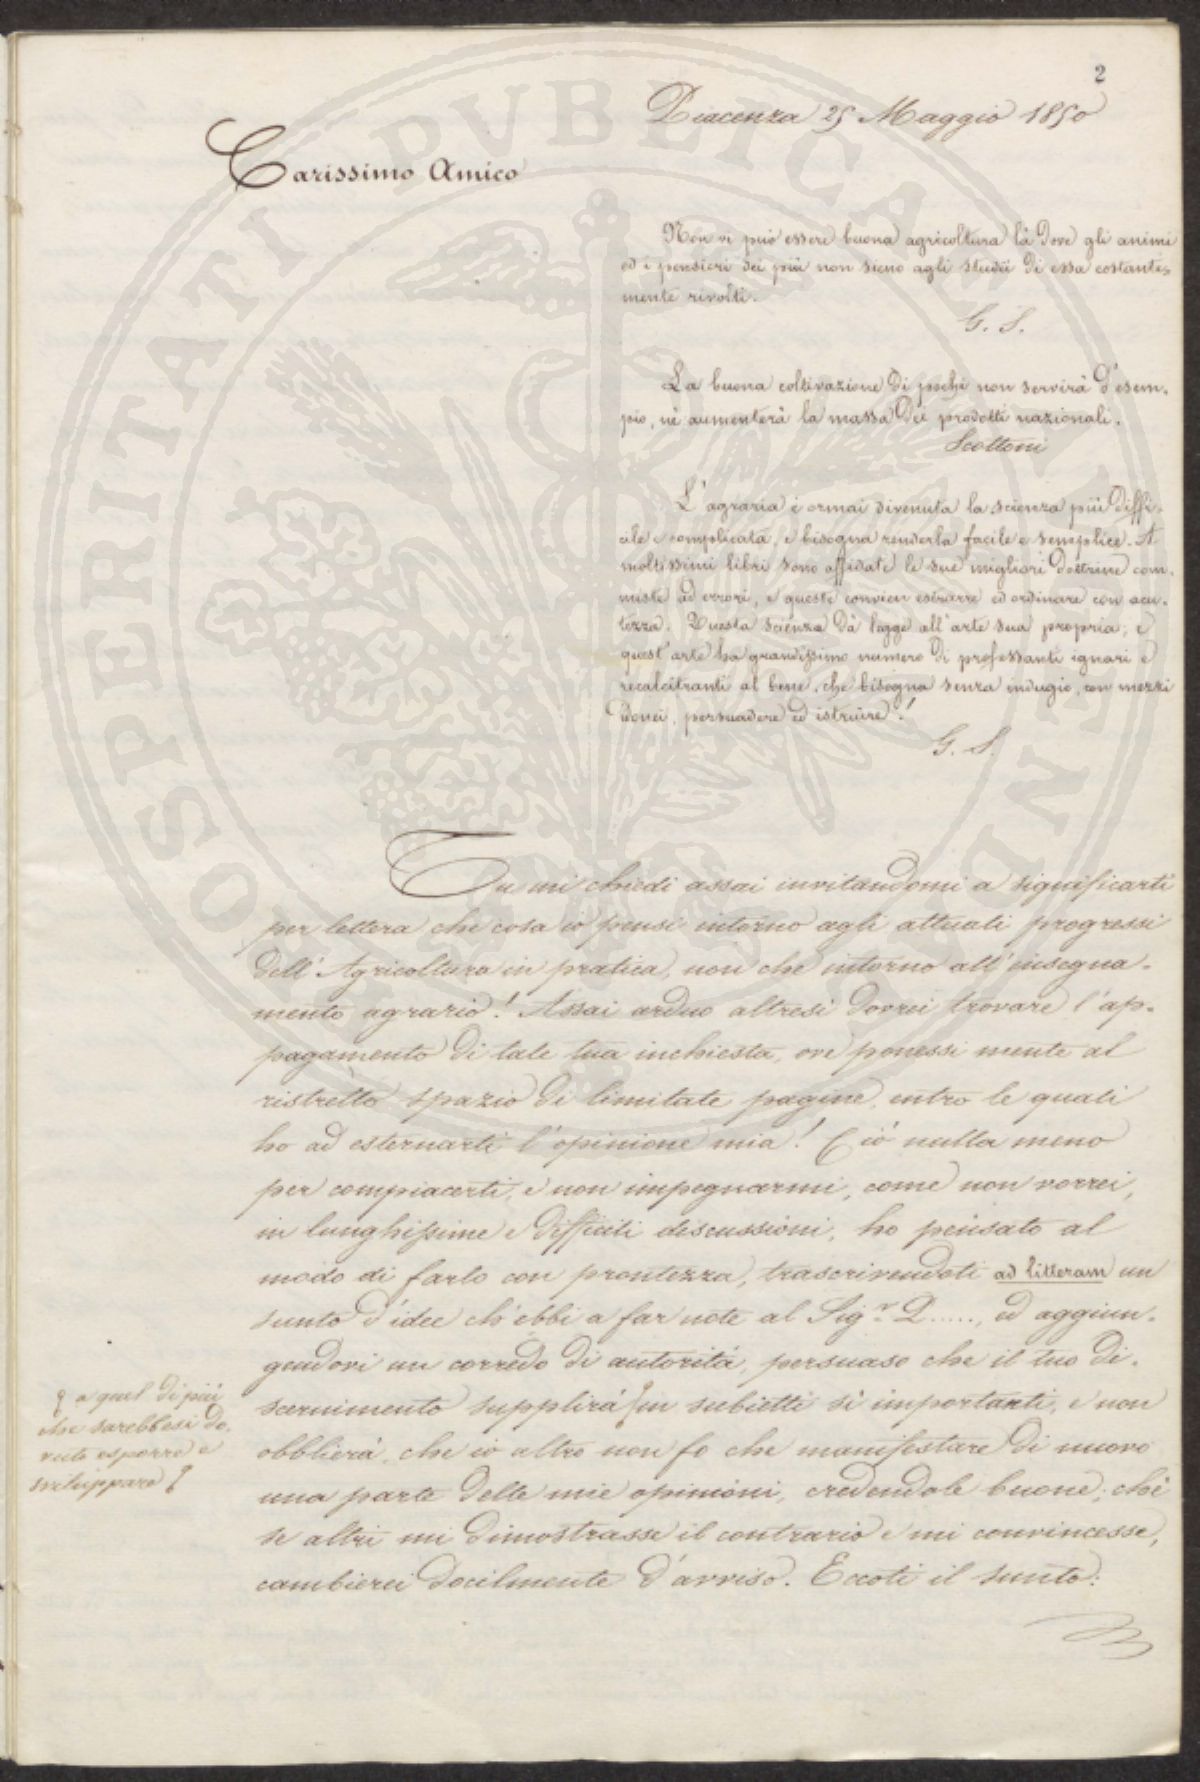 2
Piacenza 25 Maggio 1850
Carissimo Amico
Non vi può essere buona agricoltura là dove gli animi
ed i pensieri dei più non sieno agli studii di essa costante-
mente rivolti.
G. S.
La buona coltivazione di pochi non servirà d'esem-
pio, nè aumenterà la massa dei prodotti nazionali.
Scottoni
L'agraria è ormai divenuta la scienza più diffi-
cile e complicata, e bisogna renderla facile e semplice. A
moltissimi libri sono affidate le sue migliori dottrine com-
miste ad errori, e queste convien estrarre ed ordinare con acu-
tezza. Questa scienza dà legge all'arte sua propria; e
quest'arte ha grandissimo numero di professanti ignari e
recalcitranti al bene, che bisogna senza indugio, con mezzi
idonei, persuadere ed istruire!
G. S.
Tu mi chiedi assai invitandomi a significarti
per lettera che cosa io pensi intorno agli attuali progressi
dell'Agricoltura in pratica, non che intorno all'insegna-
mento agrario! Assai arduo altresì dovrei trovare l'ap-
pagamento di tale tua inchiesta, ove ponessi mente al
ristretto spazio di limitate pagine, entro le quali
ho ad esternarti l'opinione mia! Ciò nulla meno
per compiacerti, e non impegnarmi, come non vorrei,
in lunghissime e difficili discussioni, ho pensato al
modo di farlo con prontezza, trascrivendoti ad litteram un
sunto d'idee ch'ebbi a far note al Sig.r D....., ed aggiun-
gendovi un corredo di autorità, persuaso che il tuo di-
scernimento supplirà in subietti sì importanti, e non
obblierà, che io altro non fo che manifestare di nuovo
una parte delle mie opinioni, credendole buone; chè
se altri mi dimostrasse il contrario e mi convincesse,
cambierei docilmente d'avviso. Eccoti il sunto:
a quel di più
che sarebbesi do-
vuto esporre e
sviluppare
PROSPERITATI PVBLICAE AVGENDAE